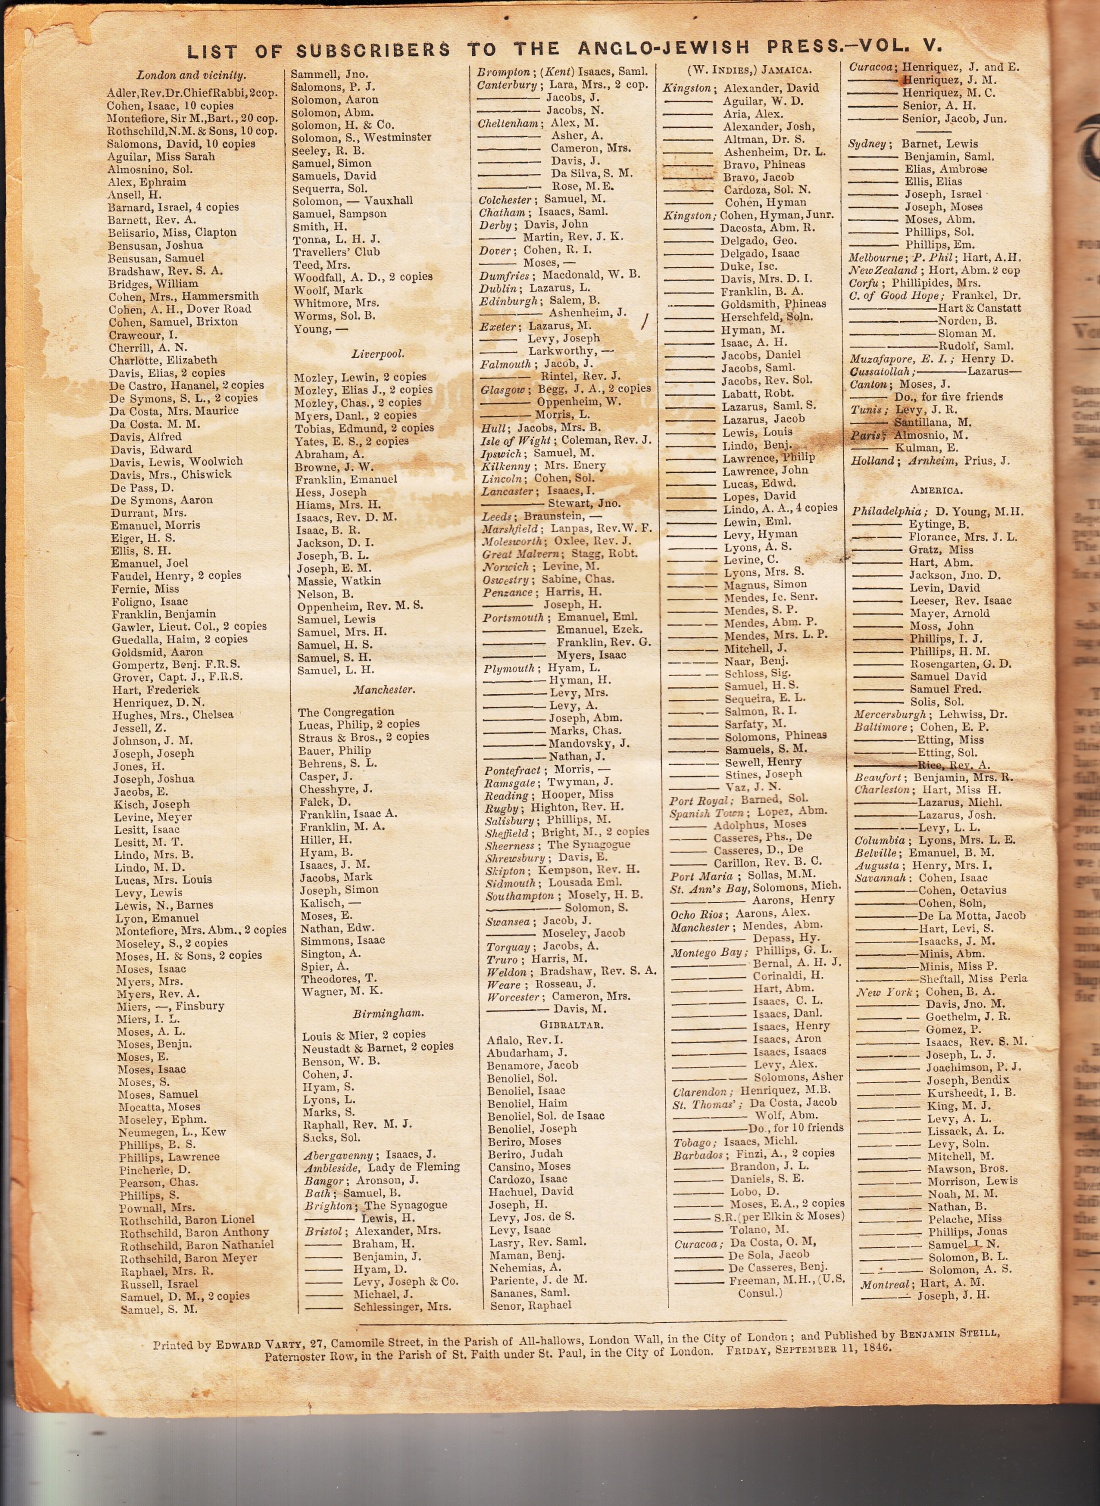 LIST OF SUBSCRIBERS TO THE ANGLO-JEWISH PRESS.—VOL. V.
London and vicinity.
Adler,Rev.Dr.ChiefRabbi,2cop.
Cohen, Isaac, 10 copies
Montefiore, Sir M.,Bart., 20 cop.
Rothschild,N.M.& Sons, 10 cop.
Salomons, David, 10 copies
Aguilar, Miss Sarah
Almosnino, Sol.
Alex, Ephraim
Ansell, H.
Barnard, Israel, 4 copies
Barnett, Rev. A.
Belisario, Miss, Clapton
Bensusan, Joshua
Bensusan, Samuel
Bradshaw, Rev. S. A.
Bridges, William
Cohen, Mrs., Hammersmith
Cohen, A. H., Dover Road
Cohen, Samuel, Brixton
Crawcour, I.
Cherrill, A. N.
Charlotte, Elizabeth
Davis, Elias, 2 copies
De Castro, Hananel, 2 copies
De Symons, S. L., 2 copies
Da Costa, Mrs. Maurice
Da Costa. M. M.
Davis, Alfred
Davis, Edward
Davis, Lewis, Woolwich
Davis, Mrs., Chiswick
De Pass, D.
De Symons, Aaron
Durrant, Mrs.
Emanuel, Morris
Eiger, H. S.
Ellis, S. H.
Emanuel, Joel
Faudel, Henry, 2 copies
Fernie, Miss
Foligno, Isaac
Franklin, Benjamin
Gawler, Lieut. Col., 2 copies
Guedalla, Haim, 2 copies
Goldsmid, Aaron
Gompertz, Benj. F.R.S.
Grover, Capt. J., F.R.S.
Hart, Frederick
Henriquez, D. N.
Hughes, Mrs., Chelsea
Jessell, Z.
Johnson, J. M.
Joseph, Joseph
Jones, H.
Joseph, Joshua
Jacobs, E.
Kisch, Joseph
Levine, Meyer
Lesitt, Isaac
Lesitt, M. T.
Lindo, Mrs. B.
Lindo, M. D.
Lucas, Mrs. Louis
Levy, Lewis
Lewis, N., Barnes
Lyon, Emanuel
Montefiore, Mrs. Abm., 2 copies
Moseley, S., 2 copies
Moses, H. & Sons, 2 copies
Moses, Isaac
Myers, Mrs.
Myers, Rev. A.
Miers, —, Finsbury
Miers, I. L.
Moses, A. L.
Moses, Benjn.
Moses, E.
Moses, Isaac
Moses, S.
Moses, Samuel
Mocatta, Moses
Moseley, Ephm.
Neumegen, L., Kew
Phillips, B. S.
Phillips, Lawrence
Pincherle, D.
Pearson, Chas.
Phillips, S.
Pownall, Mrs.
Rothschild, Baron Lionel
Rothschild, Baron Anthony
Rothschild, Baron Nathaniel
Rothschild, Baron Meyer
Raphael, Mrs. R.
Russell, Israel
Samuel, D. M., 2 copies
Samuel, S. M.
Sammell, Jno.
Salomons, P. J.
Solomon, Aaron
Solomon, Abm.
Solomon, H. & Co.
Solomon, S., Westminster
Seeley, R. B.
Samuel, Simon
Samuels, David
Sequerra, Sol.
Solomon, — Vauxhall
Samuel, Sampson
Smith, H.
Tonna, L. H. J.
Travellers' Club
Teed, Mrs.
Woodfall, A. D., 2 copies
Woolf, Mark
Whitmore, Mrs.
Worms, Sol. B.
Young, —
Liverpool.
Mozley, Lewin, 2 copies
Mozley, Elias J., 2 copies
Mozley, Chas., 2 copies
Myers, Danl., 2 copies
Tobias, Edmund, 2 copies
Yates, E. S., 2 copies
Abraham, A.
Browne, J. W.
Franklin, Emanuel
Hess, Joseph
Hiams, Mrs. H.
Isaacs, Rev. D. M.
Isaac, B. R.
Jackson, D. I.
Joseph, B. L.
Joseph, E. M.
Massie, Watkin
Nelson, B.
Oppenheim, Rev. M. S.
Samuel, Lewis
Samuel, Mrs. H.
Samuel, H. S.
Samuel, S. H.
Samuel, L. H.
Manchester.
The Congregation
Lucas, Philip, 2 copies
Straus & Bros., 2 copies
Bauer, Philip
Behrens, S. L.
Casper, J.
Chesshyre, J.
Falck, D.
Franklin, Isaac A.
Franklin, M. A.
Hiller, H.
Hyam, B.
Isaacs, J. M.
Jacobs, Mark
Joseph, Simon
Kalisch, —
Moses, E.
Nathan, Edw.
Simmons, Isaac
Sington, A.
Spier, A.
Theodores, T.
Wagner, M. K.
Birmingham.
Louis & Mier, 2 copies
Neustadt & Barnet, 2 copies
Benson, W. B.
Cohen, J.
Hyam, S.
Lyons, L.
Marks, S.
Raphall, Rev. M. J.
Sicks, Sol.
Abergavenny; Isaacs, J.
Ambleside, Lady de Fleming
Bangor; Aronson, J.
Bath; Samuel, B.
Brighton; The Synagogue
—— Lewis, H.
Bristol; Alexander, Mrs.
—— Braham, H.
—— Benjamin, J.
—— Hyam, D.
—— Levy, Joseph & Co.
—— Michael, J.
—— Schlessinger, Mrs.
Brompton; (Kent) Isaacs, Saml.
Canterbury; Lara, Mrs., 2 cop.
—— Jacobs, J.
—— Jacobs, N.
Cheltenham; Alex, M.
—— Asher, A.
—— Cameron, Mrs.
—— Davis, J.
—— Da Silva, S. M.
—— Rose, M.E.
Colchester; Samuel, M.
Chatham; Isaacs, Saml.
Derby; Davis, John
—— Martin, Rev. J. K.
Dover; Cohen, R. I.
—— Moses, —
Dumfries; Macdonald, W. B.
Dublin; Lazarus, L.
Edinburgh; Salem, B.
—— Ashenheim, J.
Exeter; Lazarus, M.
—— Levy, Joseph
—— Larkworthy, —
Falmouth; Jacob, J.
—— Rintel, Rev. J.
Glasgow; Begg, J. A., 2 copies
—— Oppenheim, W.
—— Morris, L.
Hull; Jacobs, Mrs. B.
Isle of Wight; Coleman, Rev. J.
Ipswich; Samuel, M.
Kilkenny; Mrs. Enery
Lincoln; Cohen, Sol.
Lancaster; Isaacs, I.
—— Stewart, Jno.
Leeds; Braunstein, —
Marshfield; Lanpas, Rev.W. F.
Molesworth; Oxlee, Rev. J.
Great Malvern; Stagg, Robt.
Norwich; Levine, M.
Oswestry; Sabine, Chas.
Penzance; Harris, H.
—— Joseph, H.
Portsmouth; Emanuel, Eml.
—— Emanuel, Ezek.
—— Franklin, Rev. G.
—— Myers, Isaac
Plymouth; Hyam, L.
—— Hyman, H.
—— Levy, Mrs.
—— Levy, A.
—— Joseph, Abm.
—— Marks, Chas.
—— Mandovsky, J.
—— Nathan, J.
Pontefract; Morris, —
Ramsgate; Twyman, J.
Reading; Hooper, Miss
Rugby; Highton, Rev. H.
Salisbury; Phillips, M.
Sheffield; Bright, M., 2 copies
Sheerness; The Synagogue
Shrewsbury; Davis, E.
Skipton; Kempson, Rev. H.
Sidmouth; Lousada Eml.
Southampton; Mosely, H. B.
—— Solomon, S.
Swansea; Jacob, J.
—— Moseley, Jacob
Torquay; Jacobs, A.
Truro; Harris, M.
Weldon; Bradshaw, Rev. S. A.
Weare; Rosseau, J.
Worcester; Cameron, Mrs.
—— Davis, M.
GIBRALTAR.
Aflalo, Rev. I.
Abudarham, J.
Benamore, Jacob
Benoliel, Sol.
Benoliel, Isaac
Benoliel, Haim
Benoliel, Sol. de Isaac
Benoliel, Joseph
Beriro, Moses
Beriro, Judah
Cansino, Moses
Cardozo, Isaac
Hachuel, David
Joseph, H.
Levy, Jos. de S.
Levy, Isaac
Lasry, Rev. Saml.
Maman, Benj.
Nehemias, A.
Pariente, J. de M.
Sananes, Saml.
Senor, Raphael
(W. INDIES,) JAMAICA.
Kingston; Alexander, David
—— Aguilar, W. D.
—— Aria, Alex.
—— Alexander, Josh,
—— Altman, Dr. S.
—— Ashenheim, Dr. L.
—— Bravo, Phineas
—— Bravo, Jacob
—— Cardoza, Sol. N.
—— Cohen, Hyman
Kingston; Cohen, Hyman, Junr.
—— Dacosta, Abm. R.
—— Delgado, Geo.
—— Delgado, Isaac
—— Duke, Isc.
—— Davis, Mrs. D. I.
—— Franklin, B. A.
—— Goldsmith, Phineas
—— Herschfeld, Soln.
—— Hyman, M.
—— Isaac, A. H.
—— Jacobs, Daniel
—— Jacobs, Saml.
—— Jacobs, Rev. Sol.
—— Labatt, Robt.
—— Lazarus, Saml. S.
—— Lazarus, Jacob
—— Lewis, Louis
—— Lindo, Benj.
—— Lawrence, Philip
—— Lawrence, John
—— Lucas, Edwd.
—— Lopes, David
—— Lindo, A. A., 4 copies
—— Lewin, Eml.
—— Levy, Hyman
—— Lyons, A. S.
—— Levine, C.
—— Lyons, Mrs. S.
—— Magnus, Simon
—— Mendes, Ic. Senr.
—— Mendes, S. P.
—— Mendes, Abm. P.
—— Mendes, Mrs. L. P.
—— Mitchell, J.
—— Naar, Benj.
—— Schloss, Sig.
—— Samuel, H. S.
—— Sequeira, E. L.
—— Salmon, R. I.
—— Sarfaty, M.
—— Solomons, Phineas
—— Samuels, S. M.
—— Sewell, Henry
—— Stines, Joseph
—— Vaz, J. N.
Port Royal; Barned, Sol.
Spanish Town; Lopez, Abm.
—— Adolphus, Moses
—— Casseres, Phs., De
—— Casseres, D., De
—— Carillon, Rev. B. C.
Port Maria; Sollas, M.M.
St. Ann's Bay, Solomons, Mich.
—— Aarons, Henry
Ocho Rios; Aarons, Alex.
Manchester; Mendes, Abm.
—— Depass, Hy.
Montego Bay; Phillips, G. L.
—— Bernal, A. H. J.
—— Corinaldi, H.
—— Hart, Abm.
—— Isaacs, C. L.
—— Isaacs, Danl.
—— Isaacs, Henry
—— Isaacs, Aron
—— Isaacs, Isaacs
—— Levy, Alex.
—— Solomons, Asher
Clarendon; Henriquez, M.B.
St. Thomas'; Da Costa, Jacob
—— Wolf, Abm.
—— Do., for 10 friends
Tobago; Isaacs, Michl.
Barbados; Finzi, A., 2 copies
—— Brandon, J. L.
—— Daniels, S. E.
—— Lobo, D.
—— Moses, E.A., 2 copies
—— S.R.(per Elkin & Moses)
—— Tolano, M.
Curacoa; Da Costa, O. M,
—— De Sola, Jacob
—— De Casseres, Benj.
—— Freeman, M.H., (U.S.
Consul.)
Curacoa; Henriquez, J. and E.
—— Henriquez, J. M.
—— Henriquez, M. C.
—— Senior, A. H.
—— Senior, Jacob, Jun.
Sydney; Barnet, Lewis
—— Benjamin, Saml.
—— Elias, Ambrose
—— Ellis, Elias
—— Joseph, Israel
—— Joseph, Moses
—— Moses, Abm.
—— Phillips, Sol.
—— Phillips, Em.
Melbourne; P. Phil; Hart, A.H.
New Zealand; Hort, Abm. 2 cop
Corfu; Phillipides, Mrs.
C. of Good Hope; Frankel, Dr.
—— Hart & Canstatt
—— Norden, B.
—— Sloman M.
—— Rudolf, Saml.
Muzafapore, E. I.; Henry D.
Cussatollah; —— Lazarus—
Canton; Moses, J.
—— Do., for five friends
Tunis; Levy, J. R.
—— Santillana, M.
Paris; Almosnio, M.
—— Kulman, E.
Holland; Arnheim, Prius, J.
AMERICA.
Philadelphia; D. Young, M.H.
—— Eytinge, B.
—— Florance, Mrs. J. L.
—— Gratz, Miss
—— Hart, Abm.
—— Jackson, Jno. D.
—— Levin, David
—— Leeser, Rev. Isaac
—— Mayer, Arnold
—— Moss, John
—— Phillips, I. J.
—— Phillips, H. M.
—— Rosengarten, G. D.
—— Samuel David
—— Samuel Fred.
—— Solis, Sol.
Mercersburgh; Lehwiss, Dr.
Baltimore; Cohen, E. P.
—— Etting, Miss
—— Etting, Sol.
—— Rice, Rev. A.
Beaufort; Benjamin, Mrs. R.
Charleston; Hart, Miss H.
—— Lazarus, Michl.
—— Lazarus, Josh.
—— Levy, L. L.
Columbia; Lyons, Mrs. L. E.
Belville; Emanuel, B. M.
Augusta; Henry, Mrs. I.
Savannah; Cohen, Isaac
—— Cohen, Octavius
—— Cohen, Soln,
—— De La Motta, Jacob
—— Hart, Levi, S.
—— Isaacks, J. M.
—— Minis, Abm.
—— Minis, Miss P.
—— Sheftall, Miss Perla
New York; Cohen, B. A.
—— Davis, Jno. M.
—— Goethelm, J. R.
—— Gomez, P.
—— Isaacs, Rev. S. M.
—— Joseph, L. J.
—— Joachimson, P. J.
—— Joseph, Bendix
—— Kursheedt, I. B.
—— King, M. J.
—— Levy, A. L.
—— Lissack, A. L.
—— Levy, Soln.
—— Mitchell, M.
—— Mawson, Bros.
—— Morrison, Lewis
—— Noah, M. M.
—— Nathan, B.
—— Pelache, Miss
—— Phillips, Jonas
—— Samuel I. N.
—— Solomon, B. L.
—— Solomon, A. S.
Montreal; Hart, A. M.
—— Joseph, J. H.
Printed by EDWARD VARTY, 27, Camomile Street, in the Parish of All-hallows, London Wall, in the City of London; and Published by BENJAMIN STEILL,
Paternoster Row, in the Parish of St. Faith under St. Paul, in the City of London. FRIDAY, SEPTEMBER 11, 1846.